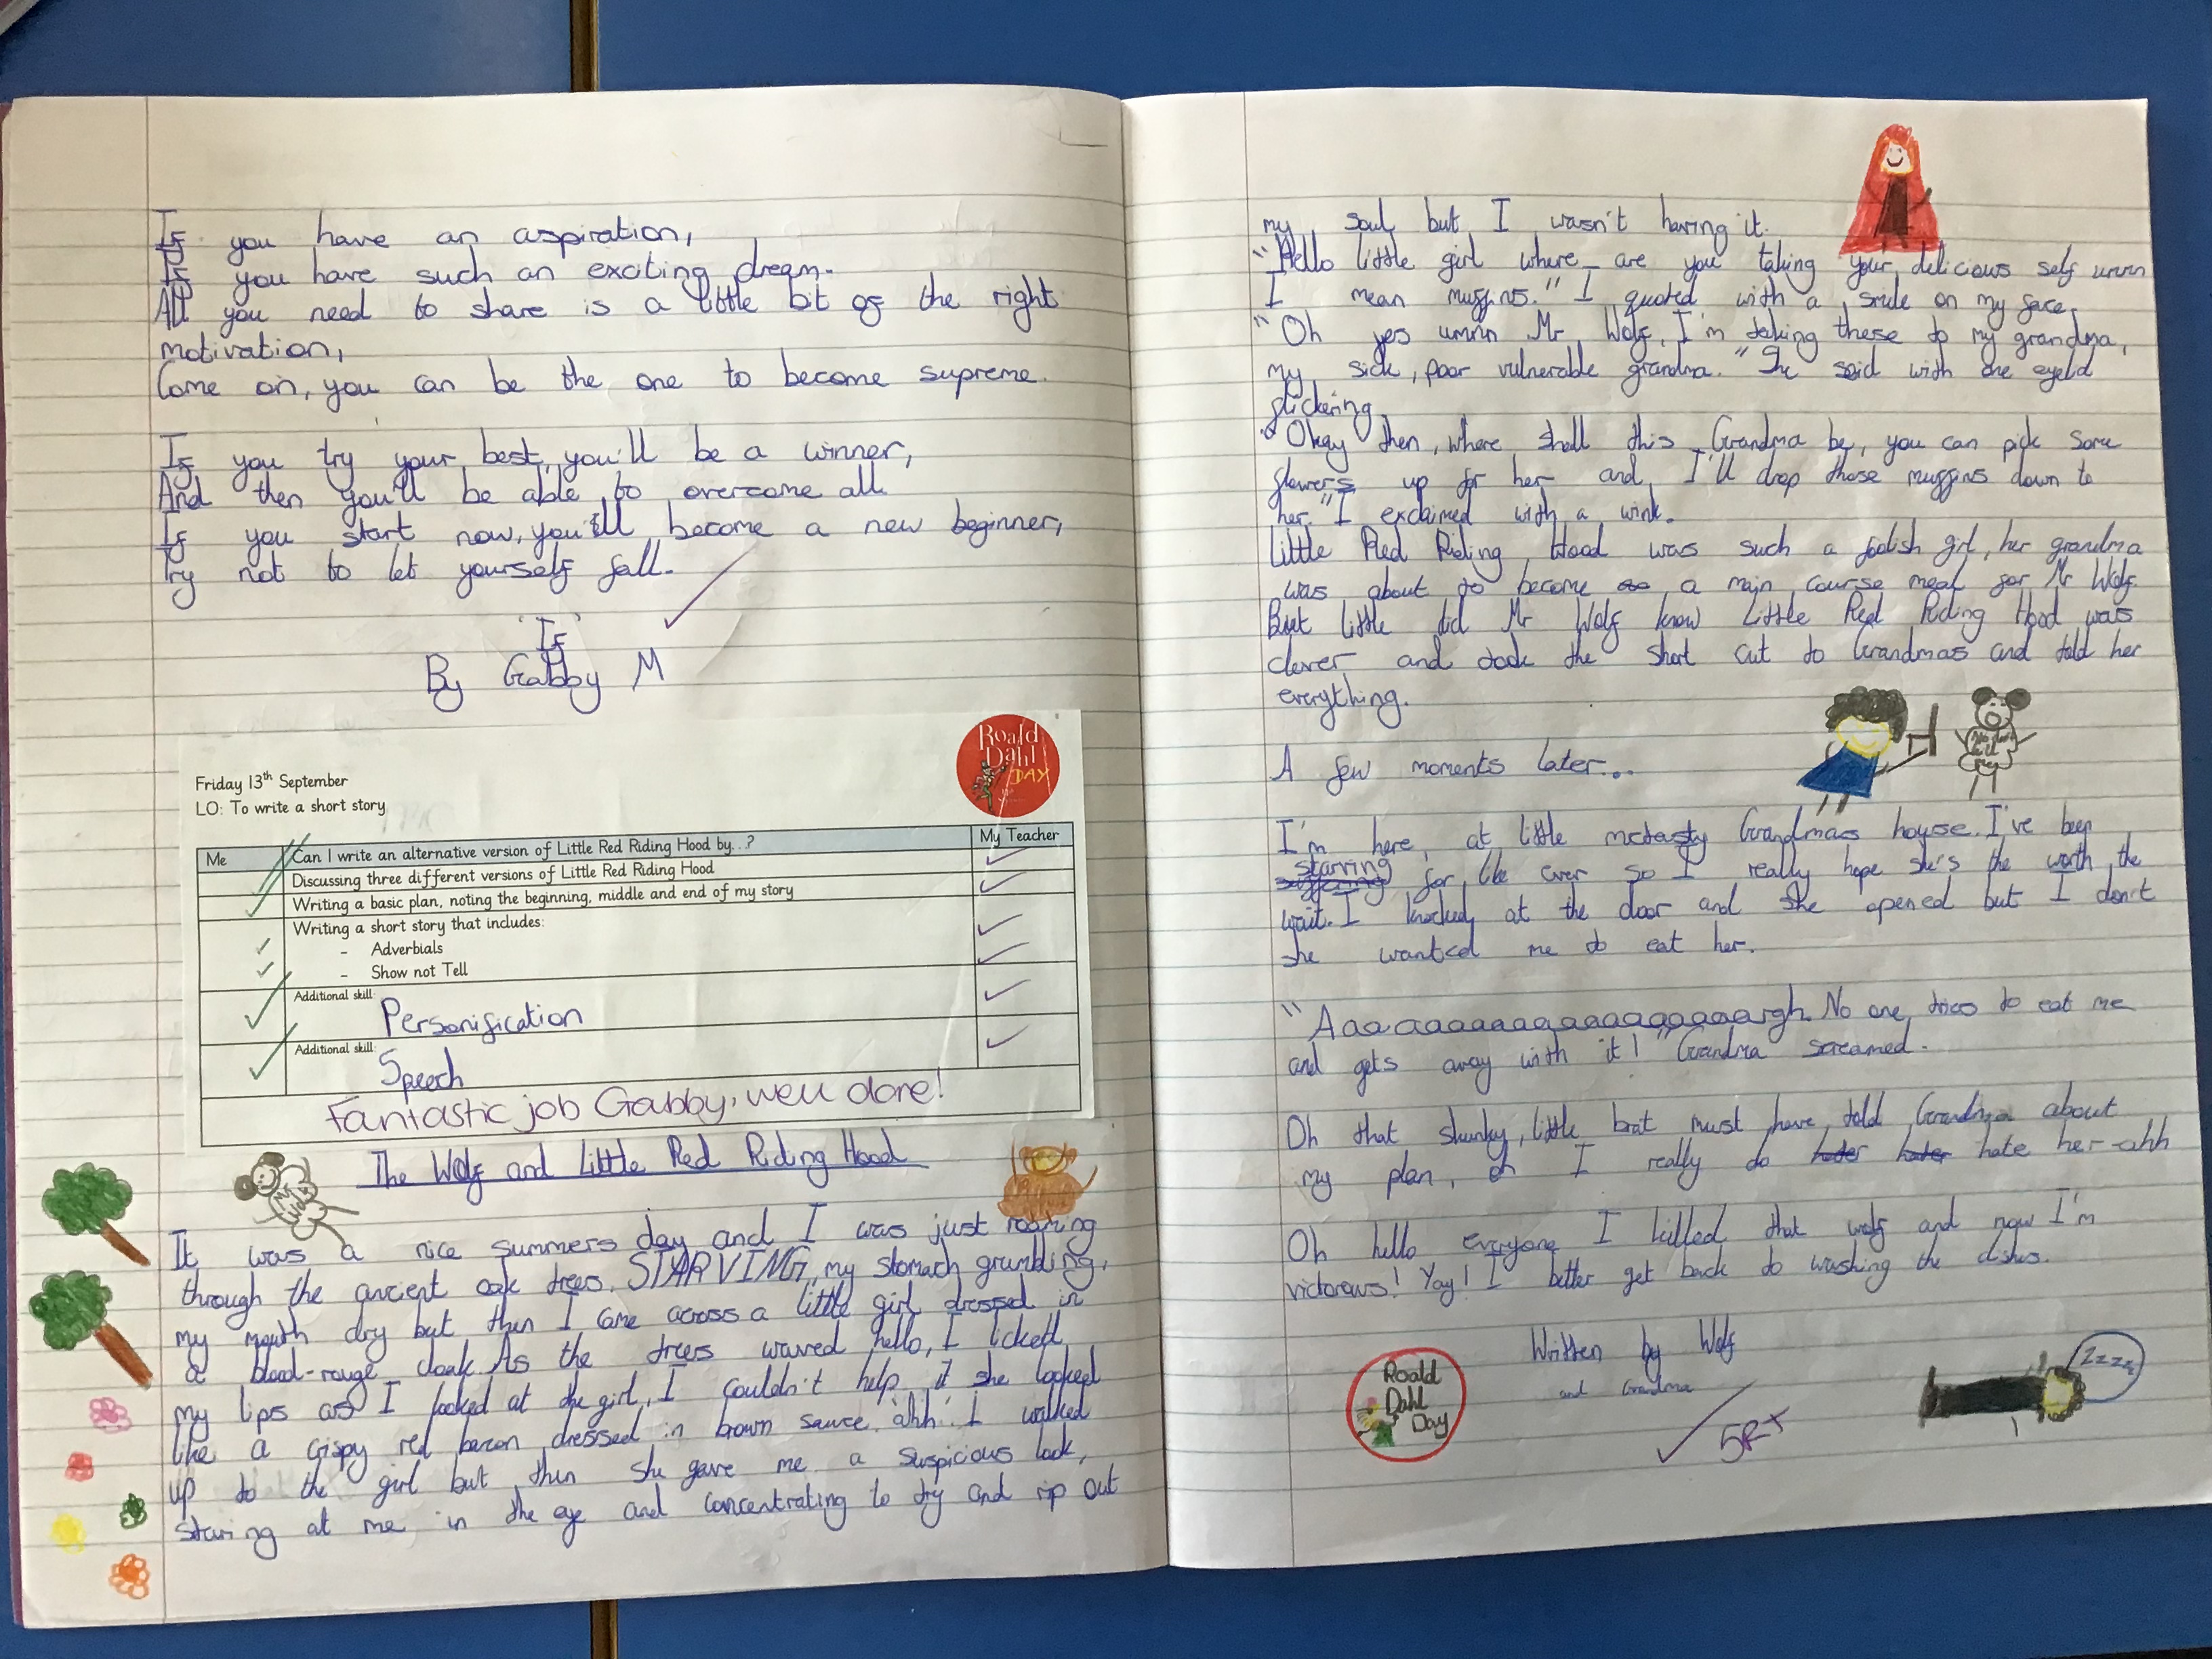 If you have an aspiration,
If you have such an exciting dream.
All you need to share is a little bit of the right
motivation,
Come on, you can be the one to become supreme.
If you try your best, you'll be a winner,
And then you'll be able to overcome all.
If you start now, you'll become a new beginner,
Try not to let yourself fall.
'If'
By Gabby M
Roald
Dahl
DAY
Friday 13th September
LO: To write a short story
Me Can I write an alternative version of Little Red Riding Hood by...? My Teacher
Discussing three different versions of Little Red Riding Hood
Writing a basic plan, noting the beginning, middle and end of my story
Writing a short story that includes:
- Adverbials
- Show not Tell
Additional skill:
Personification
Additional skill:
Speech
Fantastic job Gabby, well done!
The Wolf and Little Red Riding Hood
Mr Wolf
It was a nice summers day and I was just roaming
through the ancient oak trees. STARVING, my stomach grumbling,
my mouth dry but then I came across a little girl dressed in
a blood-rouge cloak. As the trees waved hello, I licked
my lips as I looked at the girl, I couldn't help it she looked
like a crispy red bacon dressed in brown sauce 'ahh'. I walked
up to the girl but then she gave me a suspicious look,
staring at me in the eye and concentrating to try and rip out
my soul but I wasn't having it.
"Hello little girl where are you taking your delicious self umm
I mean muffins." I quoted with a smile on my face.
"Oh yes umm Mr Wolf, I'm taking these to my grandma,
my sick, poor vulnerable grandma." She said with one eyelid
flickering.
"Okay then, where shall this Grandma be, you can pick some
flowers up for her and I'll drop those muffins down to
her." I exclaimed with a wink.
Little Red Riding Hood was such a foolish girl, her grandma
was about to become a main course meal for Mr Wolf.
But little did Mr Wolf know Little Red Riding Hood was
clever and took the short cut to Grandmas and told her
everything.
A few moments later...
I'm here, at little mctasty Grandmas house. I've been
starving for like ever so I really hope she's the worth the
wait. I knocked at the door and she opened but I don't
she wanted me to eat her.
"Aaaaaaaaaaaaaaaaaaaaargh. No one tries to eat me
and gets away with it!" Grandma screamed.
Oh that skunky, little brat must have told Grandma about
my plan, I really do hate her-ahh
Oh hello everyone I killed that wolf and now I'm
victorous! Yay! I better get back to washing the dishes.
Written by Wolf
and Grandma
Roald
Dahl
Day
5RJ
Zzzzz